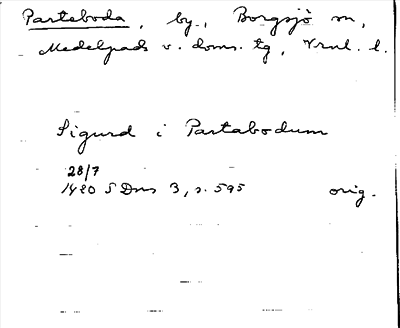 Parteboda, by, Borgsjö sn,
Medelpads v. doms. tg, Vrnl. l.
Sigurd i Partabodum
28/7
1420 SDns 3, s. 595 orig.